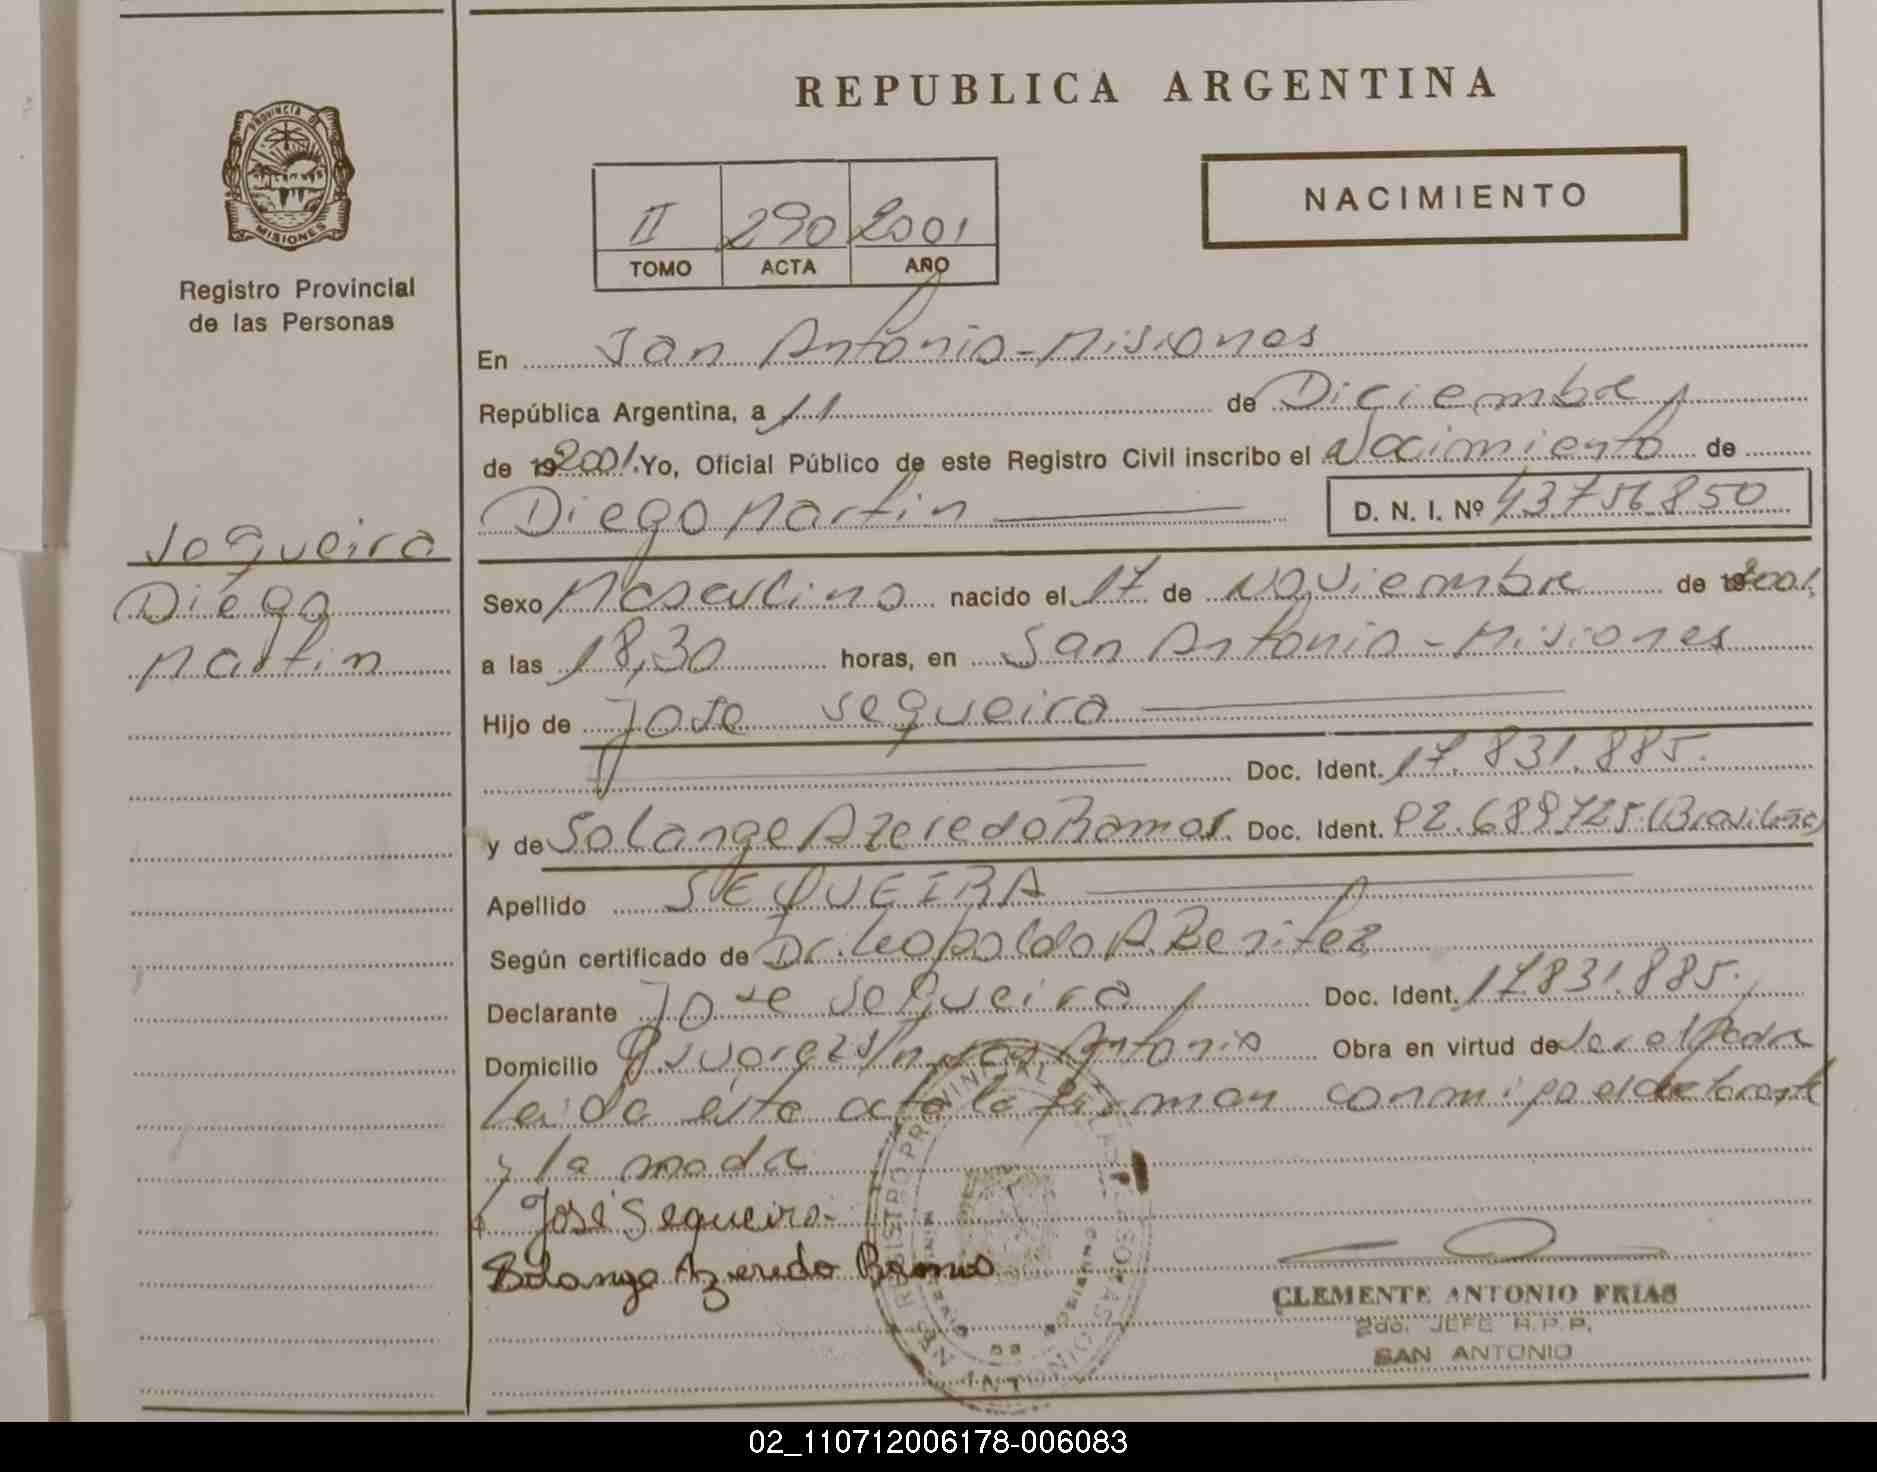 REPUBLICA ARGENTINA
NACIMIENTO
PROVINCIA DE
MISIONES
Registro Provincial
de las Personas
II 290 2001
TOMO ACTA AÑO
En San Antonio - Misiones
República Argentina, a 11 de Diciembre
de 19 2001. Yo, Oficial Público de este Registro Civil inscribo el Nacimiento de
Diego Martin D. N. I. Nº 43756850
Sequeira
Diego
Martin
Sexo Masculino nacido el 17 de Noviembre de 19 2001,
a las 18,30 horas, en San Antonio - Misiones
Hijo de Jose Sequeira
Doc. Ident. 17.831.885.
y de Solange Azeredo Ramos. Doc. Ident. P2.689725.(Brasileña)
Apellido SEQUEIRA
Según certificado de Dr. Leopoldo A. Benitez
Declarante Jose Sequeira Doc. Ident. 17.831.885.
Domicilio S/n San Antonio Obra en virtud de ser el Padre
Leida ésta acta la firman conmigo el declarante
y la madre
José Sequeira
Solange Azeredo Ramos
REGISTRO PROVINCIAL DE LAS PERSONAS
CLEMENTE ANTONIO FRIAS
2do. JEFE R.P.P.
SAN ANTONIO
02_110712006178-006083